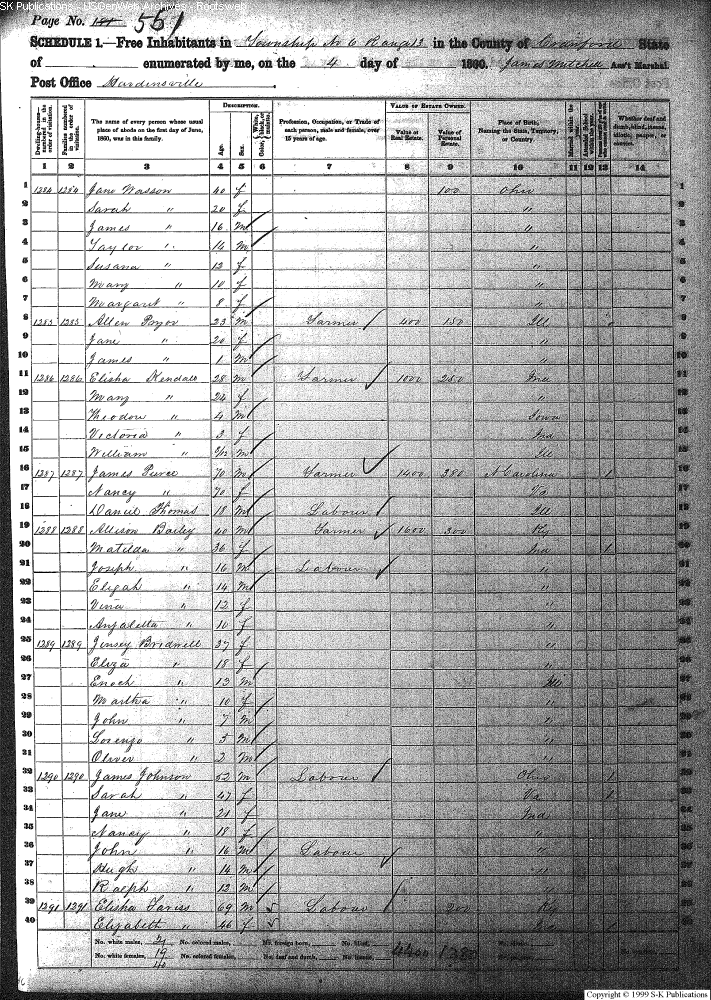 SK Publications - USGenWeb Archives - Rootsweb
Page No. 181 551
SCHEDULE 1.—Free Inhabitants in Township No 6 Range 13 in the County of Crawford State
of enumerated by me, on the 4 day of 1860. James Mitchell Ass't Marshal.
Post Office Hardinsville
DESCRIPTION. VALUE OF ESTATE OWNED.
Dwelling-houses—numbered in the order of visitation. Families numbered in the order of visitation. The name of every person whose usual place of abode on the first day of June, 1860, was in this family. Age. Sex. Color, White, black, or mulatto. Profession, Occupation, or Trade of each person, male and female, over 15 years of age. Value of Real Estate. Value of Personal Estate. Place of Birth, Naming the State, Territory, or Country. Married within the year. Attended School within the year. Whether deaf and dumb, blind, insane, idiotic, pauper, or convict.
1 2 3 4 5 6 7 8 9 10 11 12 13 14
1 1284 1284 Jane Wasson 40 f 100 Ohio 1
2 Sarah " 20 f " 2
3 James " 16 m " 3
4 Taylor " 14 m " 4
5 Susana " 12 f " 5
6 Mary " 10 f " 6
7 Margaret " 8 f " 7
8 1285 1285 Allen Pryor 23 m Farmer 400 150 Ill 8
9 Jane " 20 f " 9
10 James " 1 m " 10
11 1286 1286 Elisha Kendall 28 m Farmer 1000 250 Ind 11
12 Mary " 24 f " 12
13 Theodore " 4 m Iowa 13
14 Victoria " 3 f Ind 14
15 William " m Ill 15
16 1287 1287 James Pierce 70 m Farmer 1400 380 N Carolina 1 16
17 Nancy " 70 f Va 17
18 Daniel Thomas 18 m Labour Ill 18
19 1288 1288 Allison Bailey 40 m Farmer 1600 300 Ky 19
20 Matilda " 36 f Ind 1 20
21 Joseph " 16 m Labour " 21
22 Elijah " 14 m " 22
23 " 12 f " 23
24 " 10 f " 24
25 1289 1289 Jinsey Bridwell 37 f " 25
26 Eliza " 18 f " 26
27 Enoch " 13 m Ill 27
28 Martha " 10 f " 28
29 John " 7 m " 29
30 Lorenzo " 5 m " 30
31 Oliver " 2 m " 31
32 1290 1290 James Johnson 52 m Labour Ohio 1 32
33 Sarah " 47 f Va 1 33
34 Jane " 21 f Ind 34
35 Nancy " 18 f " 35
36 John " 16 m Labour 36
37 Hugh " 14 m 37
38 Ralph " 12 m 38
39 1291 1291 Elisha Fariss 69 m Labour 200 39
40 Elizabeth " 46 f 1 40
No. white males, 21 No. colored males, No. foreign born, No. blind,
No. white females, 19 No. colored females, No. deaf and dumb, No. insane, 4400 1380
40
Copyright © 1999 S-K Publications